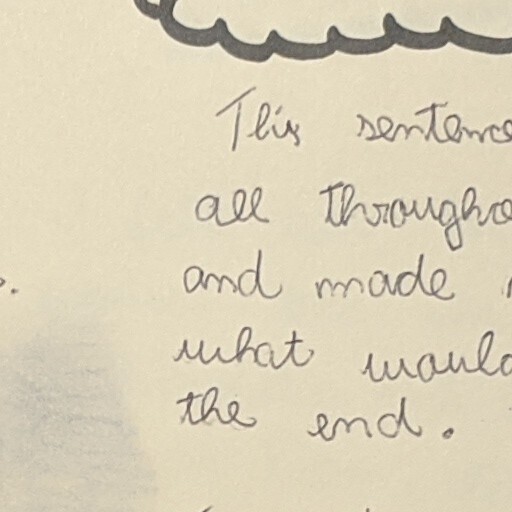 This sentenc
all througho
and made
what would
the end.